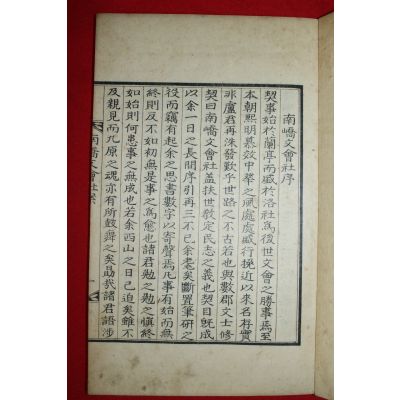 南嶠文會社序
契事始於蘭亭而盛於洛社爲後世文會之勝事焉至
本朝熙明慕效中華之風處處盛行挽近以來名存實
非盧君再洙發歎乎世路之不古若也與數郡文士修
契曰南嶠文會社盖扶世敎定民志之義也契目旣成
以余一日之長問序引再三不已余老矣斷置筆硏之
役而竊有起余之思書數字以寄聲焉凡事有始而無
終則反不如初無是事之爲愈也諸君勉之勉之愼終
如始則何患事之無成也若余西山之日已迫矣雖不
及親見而九原之魂亦有所鼓舞之矣勗哉諸君語涉
南嶠文會社案